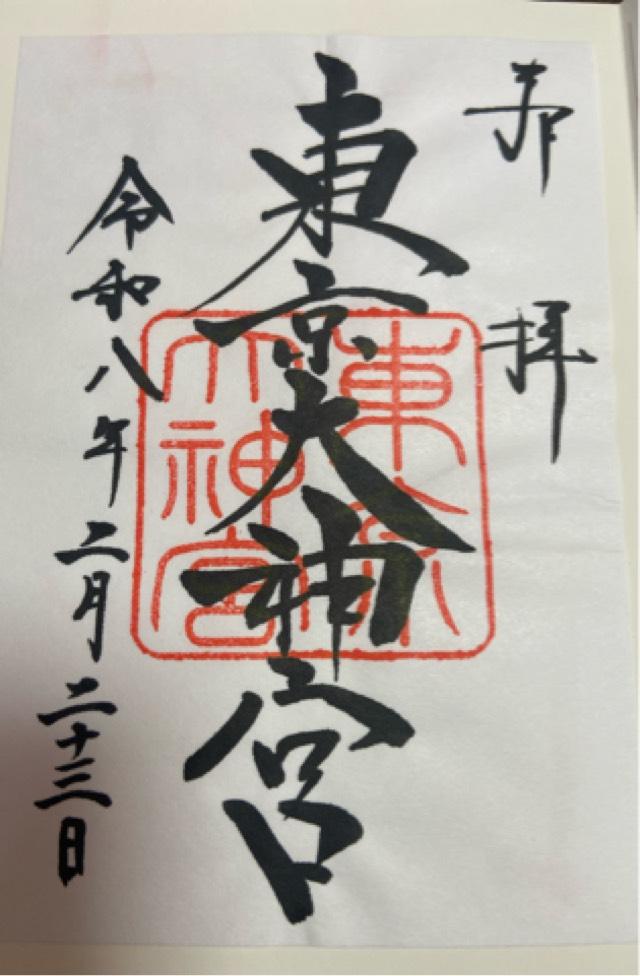 奉拝
東京大神宮
東京大神宮
令和八年二月二十三日